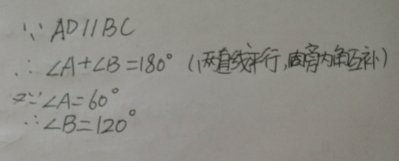 ∵ AD//BC
∴ ∠A+∠B=180° (两直线平行,同旁内角互补)
又∵∠A=60°
∴∠B=120°